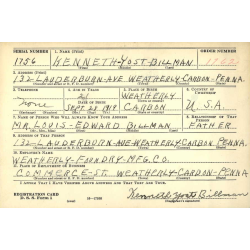 SERIAL NUMBER 1. NAME (Print) ORDER NUMBER
1756 KENNETH-YOST-BILLMAN
2. ADDRESS (Print)
132-LAUDERBURN-AVE WEATHERLY-CARBON-PENNA.
3. TELEPHONE 4. AGE IN YEARS 5. PLACE OF BIRTH 6. COUNTRY OF CITIZENSHIP
21 WEATHERLY
None DATE OF BIRTH
SEPT 23 1919 CARBON U.S.A.
7. NAME OF PERSON WHO WILL ALWAYS KNOW YOUR ADDRESS 8. RELATIONSHIP OF THAT PERSON
MR. LOUIS-EDWARD BILLMAN FATHER
9. ADDRESS OF THAT PERSON
132-LAUDERBURN-AVE-WEATHERLY-CARBON-PENNA.
10. EMPLOYER'S NAME
WEATHERLY-FOUNDRY-MFG.CO.
11. PLACE OF EMPLOYMENT OR BUSINESS
COMMERCE-ST. WEATHERLY-CARBON-PENNA.
I AFFIRM THAT I HAVE VERIFIED ABOVE ANSWERS AND THAT THEY ARE TRUE.
REGISTRATION CARD
D. S. S. Form 1 Kenneth Yost Billman